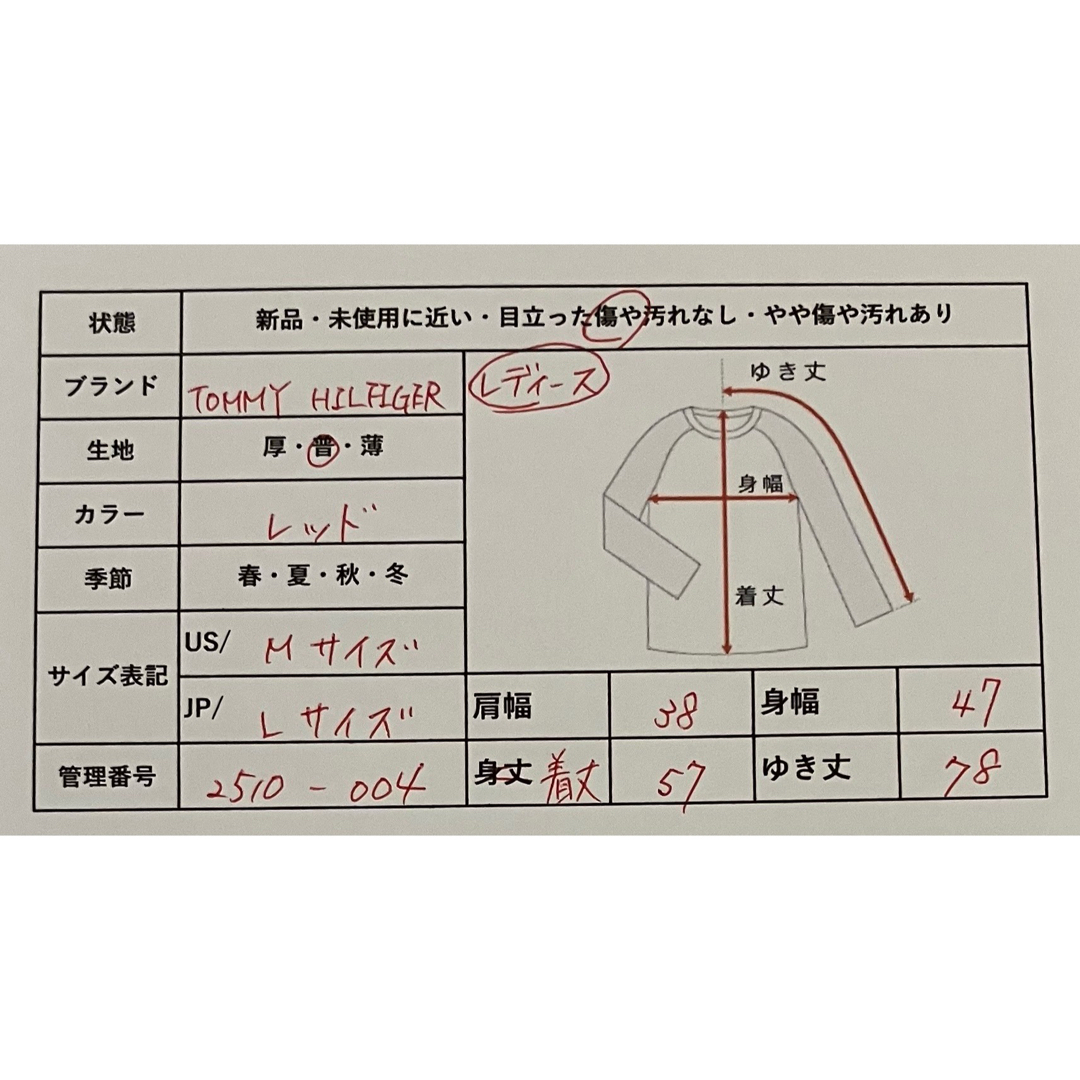 状態 新品・未使用に近い・目立った傷や汚れなし・やや傷や汚れあり
ブランド TOMMY HILFIGER レディース
ゆき丈
生地 厚・普・薄
身幅
カラー レッド
季節 春・夏・秋・冬
着丈
サイズ表記 US/ Mサイズ
JP/ Lサイズ 肩幅 38 身幅 47
管理番号 2510-004 身丈 着丈 57 ゆき丈 78